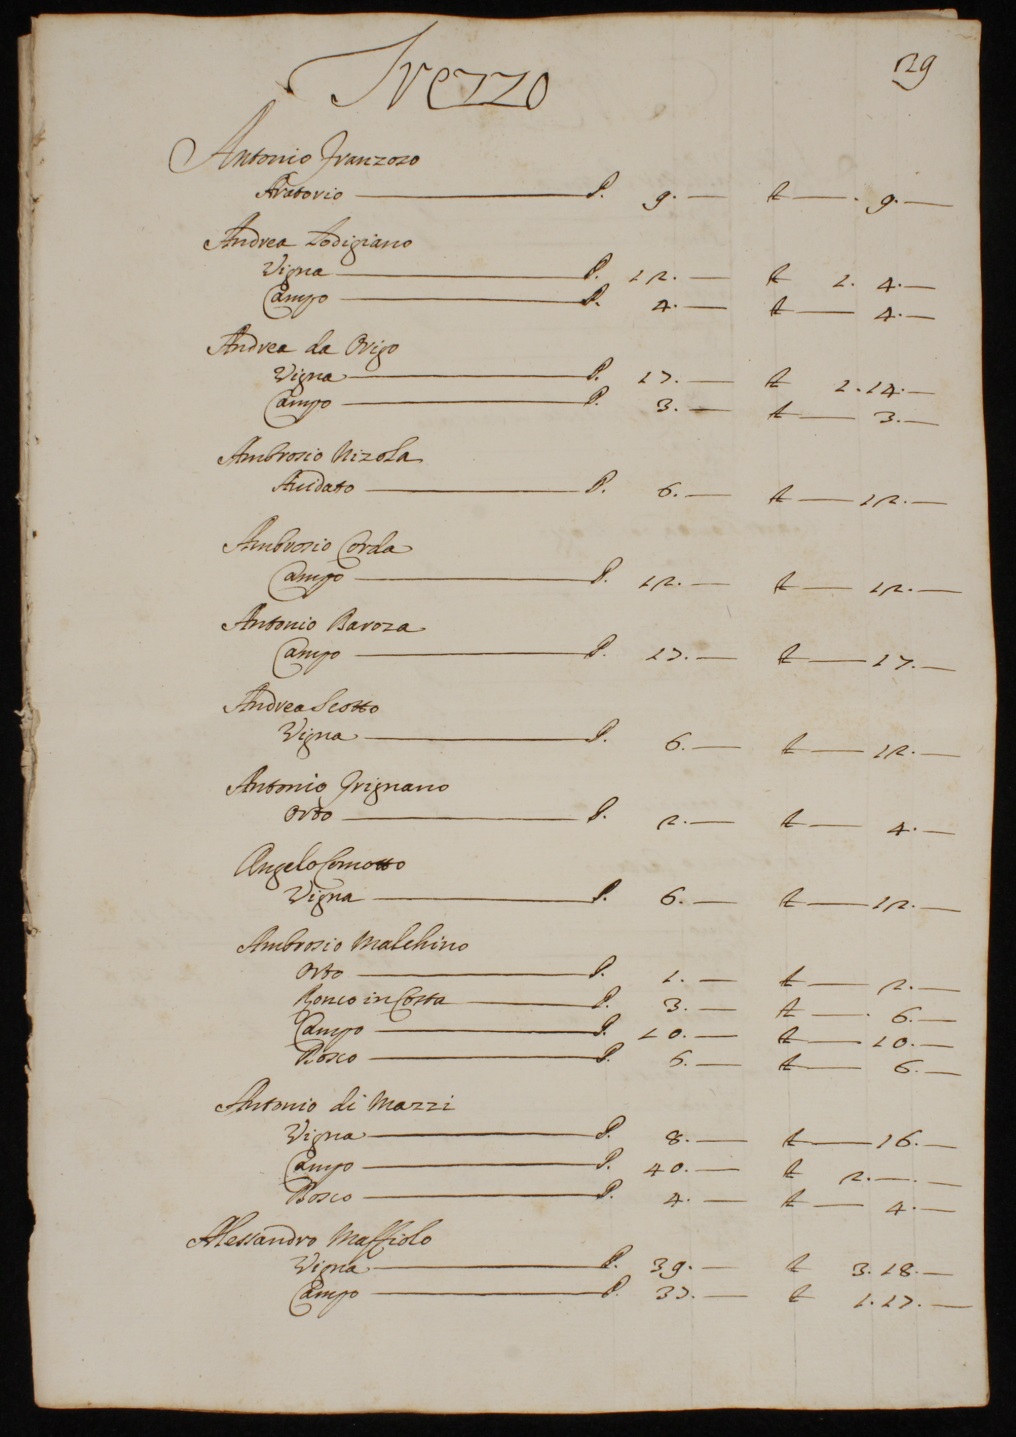 29
Trezzo
Antonio Franzoso
Aratorio P. 9. — £ — . 9. —
Andrea Lodigiano
Vigna P. 12. — £ 1. 4. —
Campo P. 4. — £ — 4. —
Andrea da Origo
Vigna P. 17. — £ 1. 14. —
Campo P. 3. — £ — 3. —
Ambrosio Nizola
Auidato P. 6. — £ — 12. —
Ambrosio Corda
Campo P. 12. — £ — 12. —
Antonio Baroza
Campo P. 17. — £ — 17. —
Andrea Scotto
Vigna P. 6. — £ — 12. —
Antonio Frignano
Orto P. 2. — £ — 4. —
Angelo Comotto
Vigna P. 6. — £ — 12. —
Ambrosio Malchino
Orto P. 1. — £ — 2. —
Ronco in Costa P. 3. — £ — . 6. —
Campo P. 10. — £ — 10. —
Bosco P. 6. — £ — 6. —
Antonio di Mazzi
Vigna P. 8. — £ — 16. —
Campo P. 40. — £ 2. — . —
Bosco P. 4. — £ — 4. —
Alessandro Maffiolo
Vigna P. 39. — £ 3. 18. —
Campo P. 37. — £ 1. 17. —